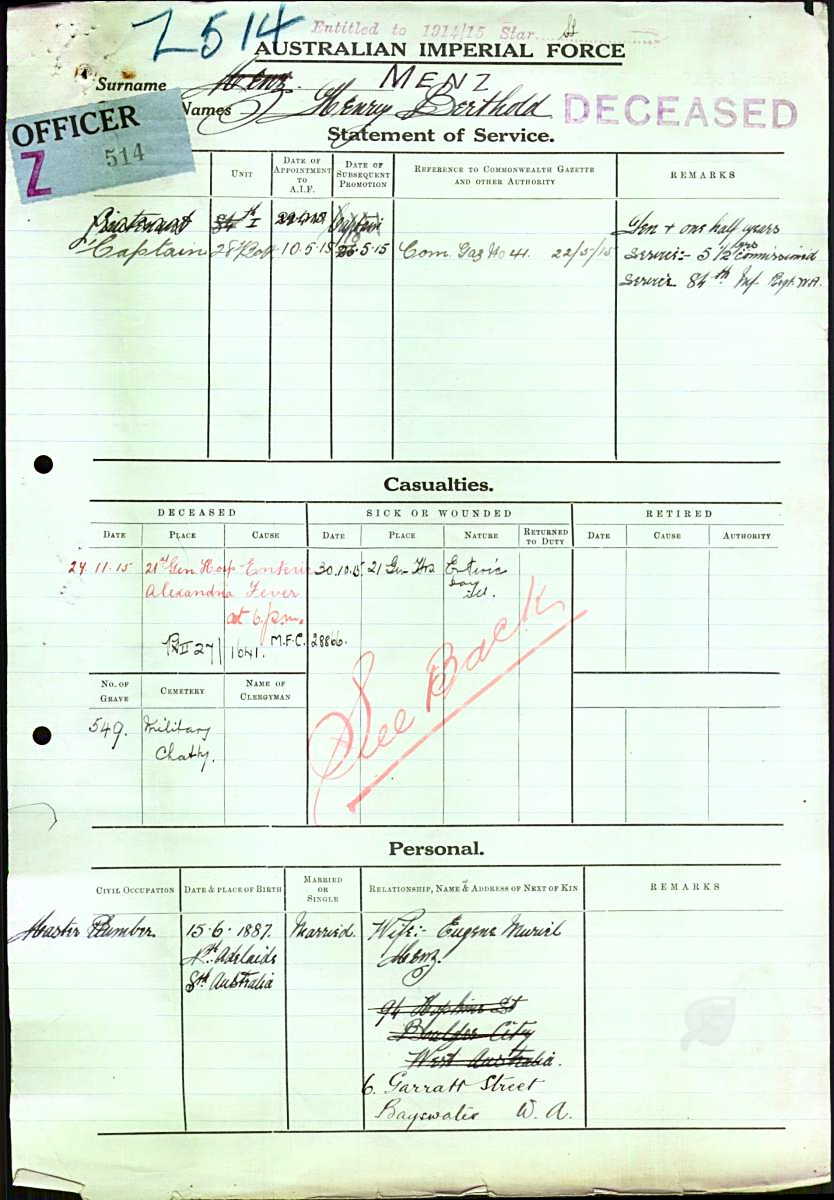 Z 514
Entitled to 1914/15 Star
AUSTRALIAN IMPERIAL FORCE
Surname Menz. MENZ
Names Henry Berthold
DECEASED
OFFICER
Z 514
Statement of Service.
UNIT
DATE OF APPOINTMENT TO A.I.F.
DATE OF SUBSEQUENT PROMOTION
REFERENCE TO COMMONWEALTH GAZETTE AND OTHER AUTHORITY
REMARKS
Lieutenant 84th I Captain
Captain 28 Bat 10.5.15 5.15 Com. Gaz No 41. 22/5/15
Ten + one half years
service:- 5 1/2 yrs commissioned
service 84th Inf. Regt. W.A.
Casualties.
DECEASED
SICK OR WOUNDED
RETIRED
DATE PLACE CAUSE DATE PLACE NATURE RETURNED TO DUTY DATE CAUSE AUTHORITY
24.11.15 21st Gen Hosp Enteric 30.10.15 21 Gen Hos Enteric
Alexandria Fever
at 6 p.m.
27 1641. M.F.C. 28866.
See Back
NO. OF GRAVE CEMETERY NAME OF CLERGYMAN
549. Military
Chatby.
Personal.
CIVIL OCCUPATION
DATE & PLACE OF BIRTH
MARRIED OR SINGLE
RELATIONSHIP, NAME & ADDRESS OF NEXT OF KIN
REMARKS
Master Plumber. 15.6.1887. Married. Wife:- Eugene Muriel
Nth Adelaide Menz.
Sth Australia
94 Hopkins St
Boulder City
West Australia.
6. Garratt Street
Bayswater W.A.